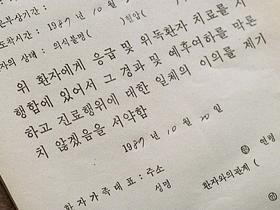 도착시간 : 1987 년 10 월
자의 상태 : 의식불명( ) 혈압(
위 환자에게 응급 및 위독환자 치료를 시
행함에 있어서 그 경과 및 예후여하를 막론
하고 진료행위에 대한 일체의 이의를 제기
치 않겠음을 서약함
1987 년 10 월 20 일
환 자 가 족 대 표 : 주소
성명
환자와의관계 (
인명